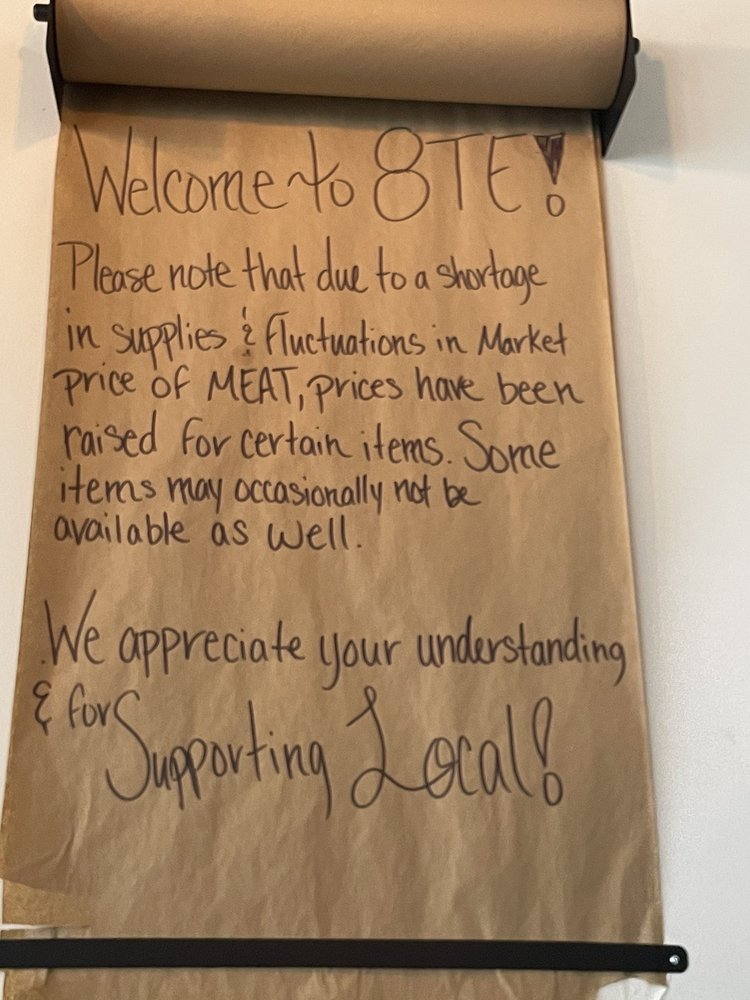 Welcome to 8TE!
Please note that due to a shortage
in supplies & fluctuations in Market
price of MEAT, prices have been
raised for certain items. Some
items may occasionally not be
available as well.
We appreciate your understanding
& for Supporting Local!